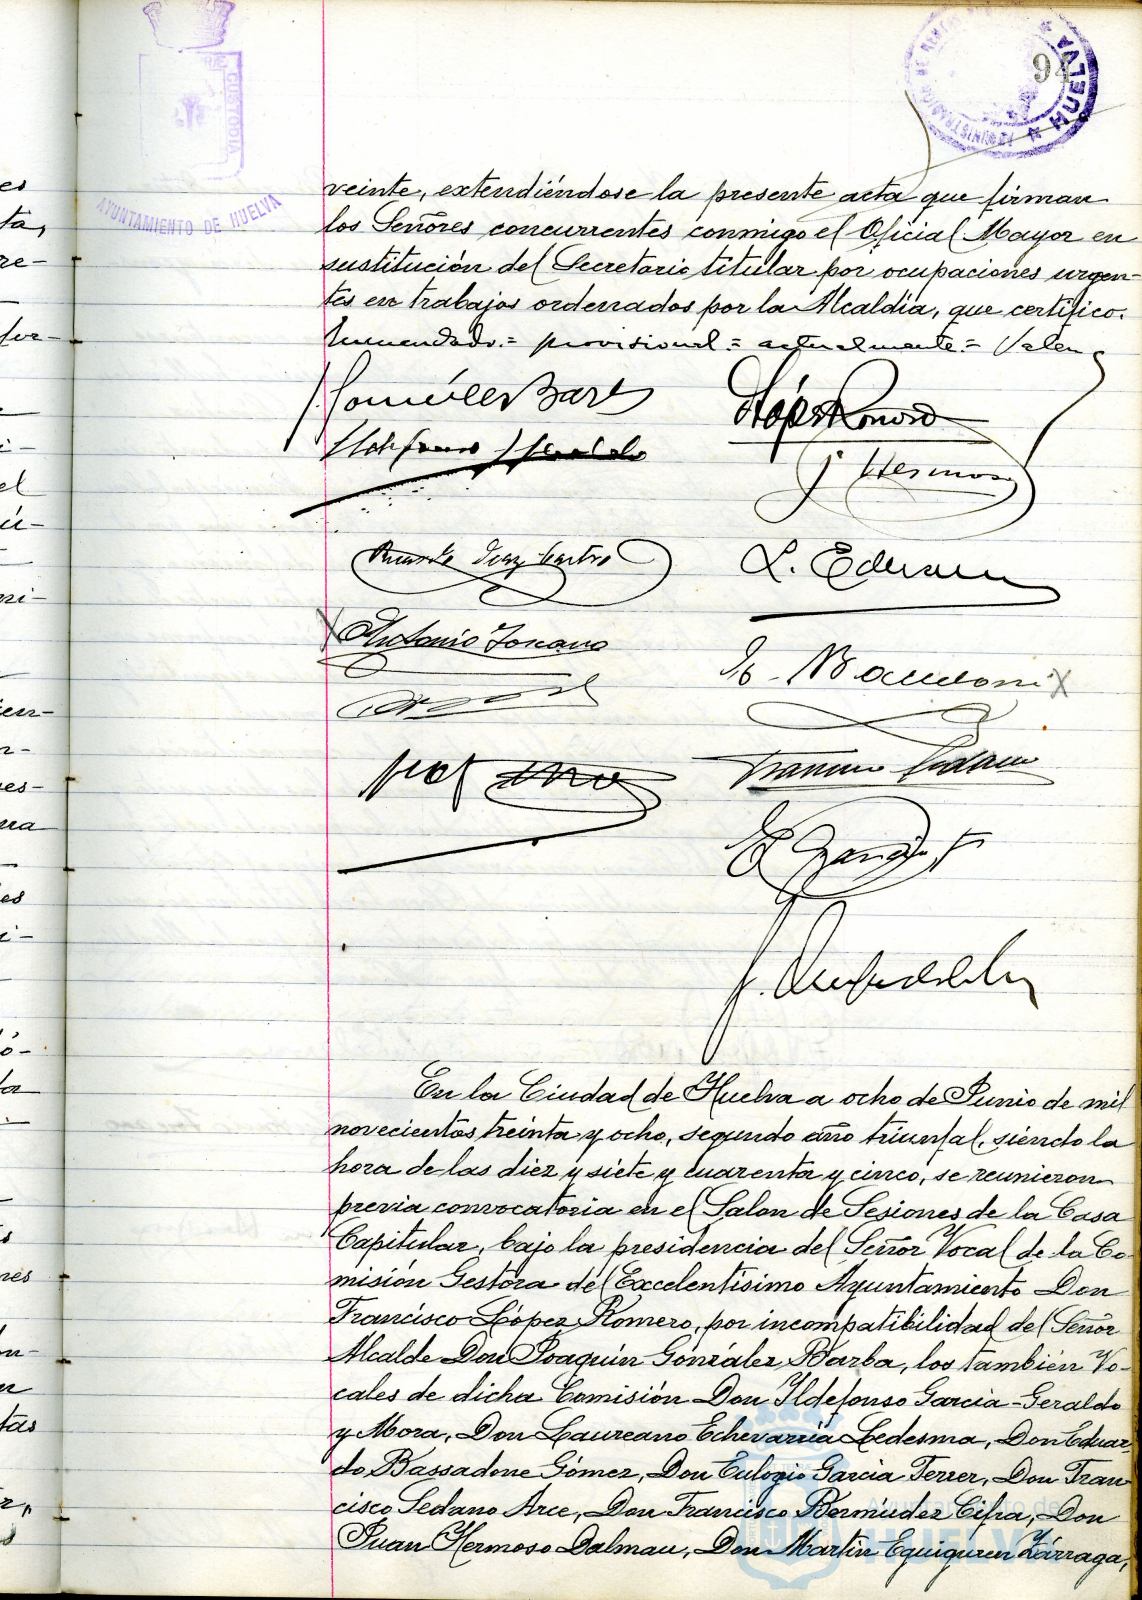 94
HUELVA
CUSTODIA
AYUNTAMIENTO DE HUELVA
veinte, extendiéndose la presente acta que firman
los Señores concurrentes conmigo el Oficial Mayor en
sustitución del Secretario titular por ocupaciones urgen-
tes en trabajos ordenados por la Alcaldía, que certifico.
Enmendado.= provisional = actualmente = Valen
González Barba
López Romero
Ildefonso Geraldo
J Hermoso
Ricardo Diaz Castro
L. Echevarria
Antonio Toscano
Francisco Sedano
En la Ciudad de Huelva a ocho de Junio de mil
novecientos treinta y ocho, segundo año triunfal, siendo la
hora de las diez y siete y cuarenta y cinco, se reunieron
previa convocatoria en el Salon de Sesiones de la Casa
Capitular, bajo la presidencia del Señor Vocal de la Co-
misión Gestora del Excelentísimo Ayuntamiento Don
Francisco López Romero, por incompatibilidad del Señor
Alcalde Don Joaquín González Barba, los también Vo-
cales de dicha Comisión Don Ildefonso Garcia-Geraldo
y Mora, Don Laureano Echevarría Ledesma, Don Eduar-
do Bassadone Gómez, Don Eulogio Garcia Ferrer, Don Fran
cisco Sedano Arce, Don Francisco Bermúdez Cifra, Don
Juan Hermoso Dalmau, Don Martín Equiguren Zárraga,
Ayuntamiento de
HUELVA